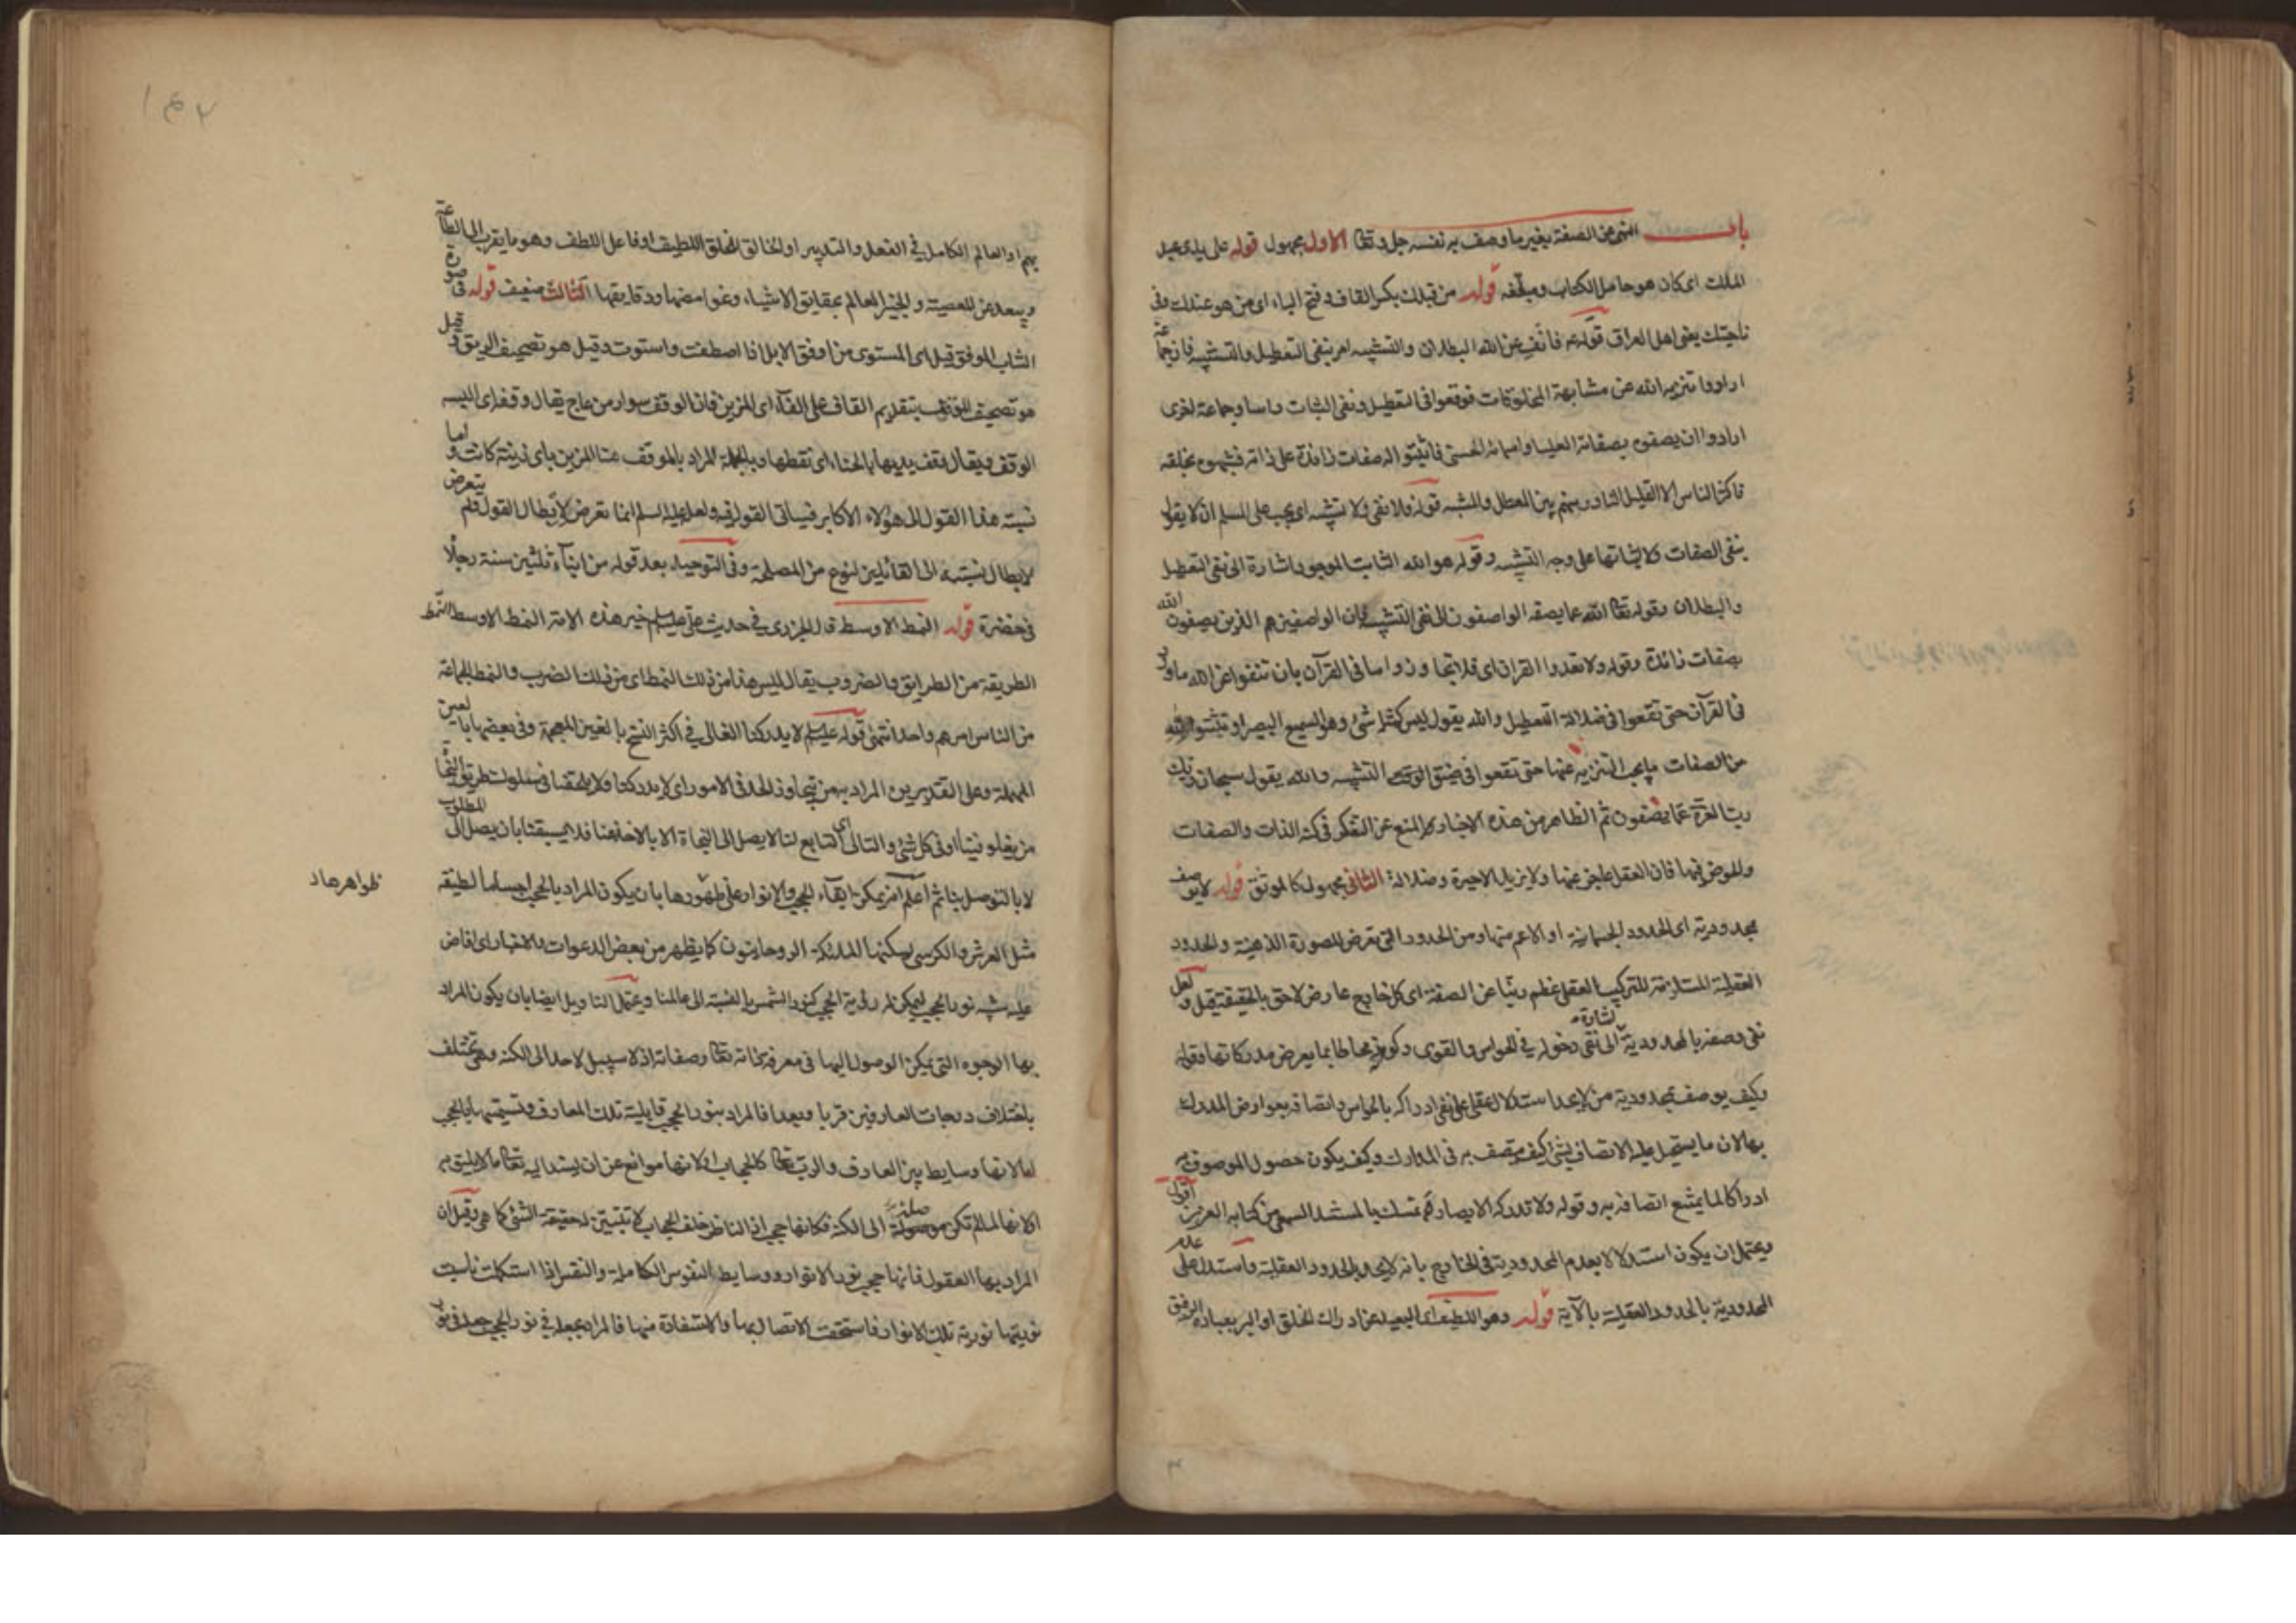 باب النهى عن الصفة بغير ما وصف به نفسه جل وتعا الاول مجهول قوله على يدى عبد
الملك اى كان هو حامل الكتاب ومبلغه قوله من قبلك بكسر القاف وفتح الباء اى من هو عندك وفى
ناحيتك يعنى اهل العراق قوله ع فانف عن الله البطلان والتشبيه امر بنفى التعطيل والتشبيه فان جماعة
ارادوا تنزيه الله عن مشابهة المخلوقات فوقعوا فى التعطيل ونفى الصفات راسا وجماعة اخرى
ارادوا ان يصفوه بصفاته العليا واسمائه الحسنى فاثبتوا له صفات زائدة على ذاته فشبهوه بخلقه
فاكثر الناس الا القليل النادر منهم بين المعطل والمشبه قوله فلا نفى ولا تشبيه اى يجب على المسلم ان لا يقول
بنفى الصفات ولا اثباتها على وجه التشبيه وقوله هو الله الثابت الموجود اشارة الى نفى التعطيل
والبطلان وقوله تعا الله عما يصفه الواصفون الى نفى التشبيه فان الواصفين هم الذين يصفون الله
بصفات زائدة وقوله ولا تعدوا القران اى فلا تجاوزوا ما فى القرآن بان تنفوا عن الله ما ورد
فى القرآن حتى تقعوا فى ضلالة التعطيل والله يقول ليس كمثله شئ وهو السميع البصير او تثبتوا لله
من الصفات ما يجب التنزيه عنها حتى تقعوا فى التشبيه والله يقول سبحان ربك
رب العزة عما يصفون ثم الظاهر من هذه الاخبار المنع عن التفكر فى كنه الذات والصفات
والخوض فيها فان العقل عاجز عنها ولا يزيد الا حيرة وضلالة الثانى مجهول كالموثق قوله لا يوصف
بمحدودية اى الحدود الجسمانية او الاعم منها ومن الحدود التى تعرض للصورة الذهنية والحدود
العقلية المستلزمة للتركيب العقلى عظم ربنا عن الصفة اى كل خارج عارض لاحق بالحقيقة قيل ولعل
نفى وصفه بالمحدودية اشارة الى نفى دخوله فى الحواس والقوى وكونه محاطا بما يعرض مدركاتها وقوله
وكيف يوصف بمحدودية من لا يحد استدلال عقلى على نفى ادراكه بالحواس واتصافه بعوارض المدرك
بها لان ما يستحيل عليه الاتصاف بشئ كيف يتصف به فى المدارك وكيف يكون حصول الموصوف به
ادراكا لما يمتنع اتصافه به وقوله ولا تدركه الابصار تمسك بالمستند السمعى من كتابه العزيز اقول
ويحتمل ان يكون استدلالا بعدم المحدودية فى الخارج بانه لا يحد بالحدود العقلية واستدل على عدم
المحدودية بالحدود العقلية بالآية قوله وهو اللطيف اى البعيد عن ادراك الخلق او البر بعباده الرفق
بهم او العالم الكامل فى الفعل والتدبير او الخالق للخلق اللطيف او فاعل اللطف وهو ما يقرب الى الطاعة
ويبعد عن المعصية والخبير العالم بحقايق الاشياء وغوامضها ودقايقها الثالث ضعيف قوله فى صورة
الشاب الموفق قيل اى المستوى من اوفق الابل اذا اصطفت واستوت وقيل هو تصحيف الريق وقيل
هو تصحيف الموقف بتقديم القاف على الفاء اى المزين فان الوقف سوار من عاج يقال وقفه اى البسه
الوقف ويقال وقف يديها بالحناء اى نقطها وبالجملة المراد بالموقف هنا المزين باى زينة كانت واما
نسبة هذا القول الى هؤلاء الاكابر فسياتى القول فيه ولعله عليه السلم انما تعرض لابطال القول ولم يتعرض
لابطال نسبته الى القائلين لنوع من المصلحة وفى التوحيد بعد قوله من ابناء ثلثين سنة رجلاه
فى خضرة قوله النمط الاوسط قال الجزرى فى حديث على عليه السلم خير هذه الامة النمط الاوسط النمط
الطريقة من الطرايق والضروب يقال ليس هذا من ذلك النمط اى من ذلك الضرب والنمط الجماعة
من الناس امرهم واحد انتهى قوله عليه السلم لا يدركنا الغالى فى اكثر النسخ بالغين المعجمة وفى بعضها بالعين
المهملة وعلى التقديرين المراد به من يتجاوز الحد فى الامور اى لا يدركنا ولا يلحقنا فى سلوك طريق النجاة
من يغلو فينا او فى كل شئ والتالى اى التابع لنا لا يصل الى النجاة الا بالاخذ عنا فلا يسبقنا بان يصل الى المطلوب
لا بالتوصل بنا ثم اعلم انه يمكن ابقاء الحجب والانوار على ظهورها بان يكون المراد بالحجب اجساما لطيفة
ظواهرها د
مثل العرش والكرسى يسكنها الملائكة الروحانيون كما يظهر من بعض الدعوات والاخبار اى افاض
عليه شبه نور الحجب ليمكن له رؤية الحجب كنور الشمس بالنسبة الى عالمنا ويحتمل التاويل ايضا بان يكون المراد
بها الوجوه التى يمكن الوصول اليها فى معرفة ذاته تعا وصفاته اذ لا سبيل لاحد الى الكنه وهى تختلف
باختلاف درجات العارفين قربا وبعدا فالمراد بنور الحجب قابلية تلك المعارف وتسميتها بالحجب
اما لانها وسايط بين العارف والرب تعا كالحجاب او لانها موانع عن ان يسند اليه تعا ما لا يليق به
او لانها لما لم تكن موصلة الى الكنه فكانها حجب اذ الناظر خلف الحجاب لا تتبين له حقيقة الشئ كما هى وقيل ان
المراد بها العقول فانها حجب نور الانوار ووسايط النفوس الكاملة والنفس اذا استكملت ناسبت
نوريتها نورية تلك الانوار فاستحقت الاتصال بها والاستفادة منها فالمراد بجعله فى نور الحجب جعله فى نور